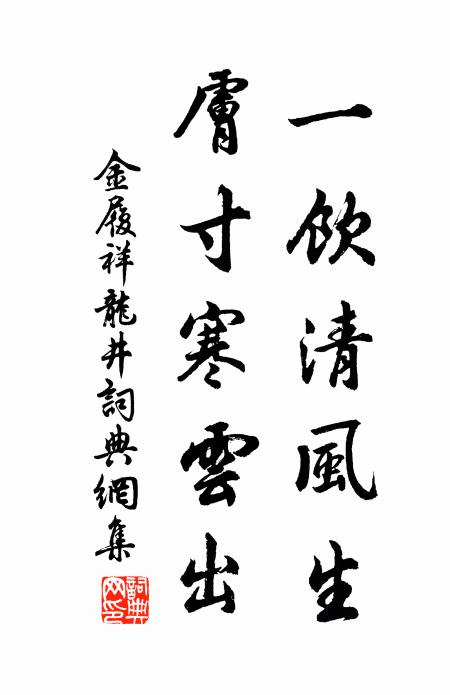 一飲清風生
膚寸寒雲出
金履祥龍井詞典網集
詞典网印